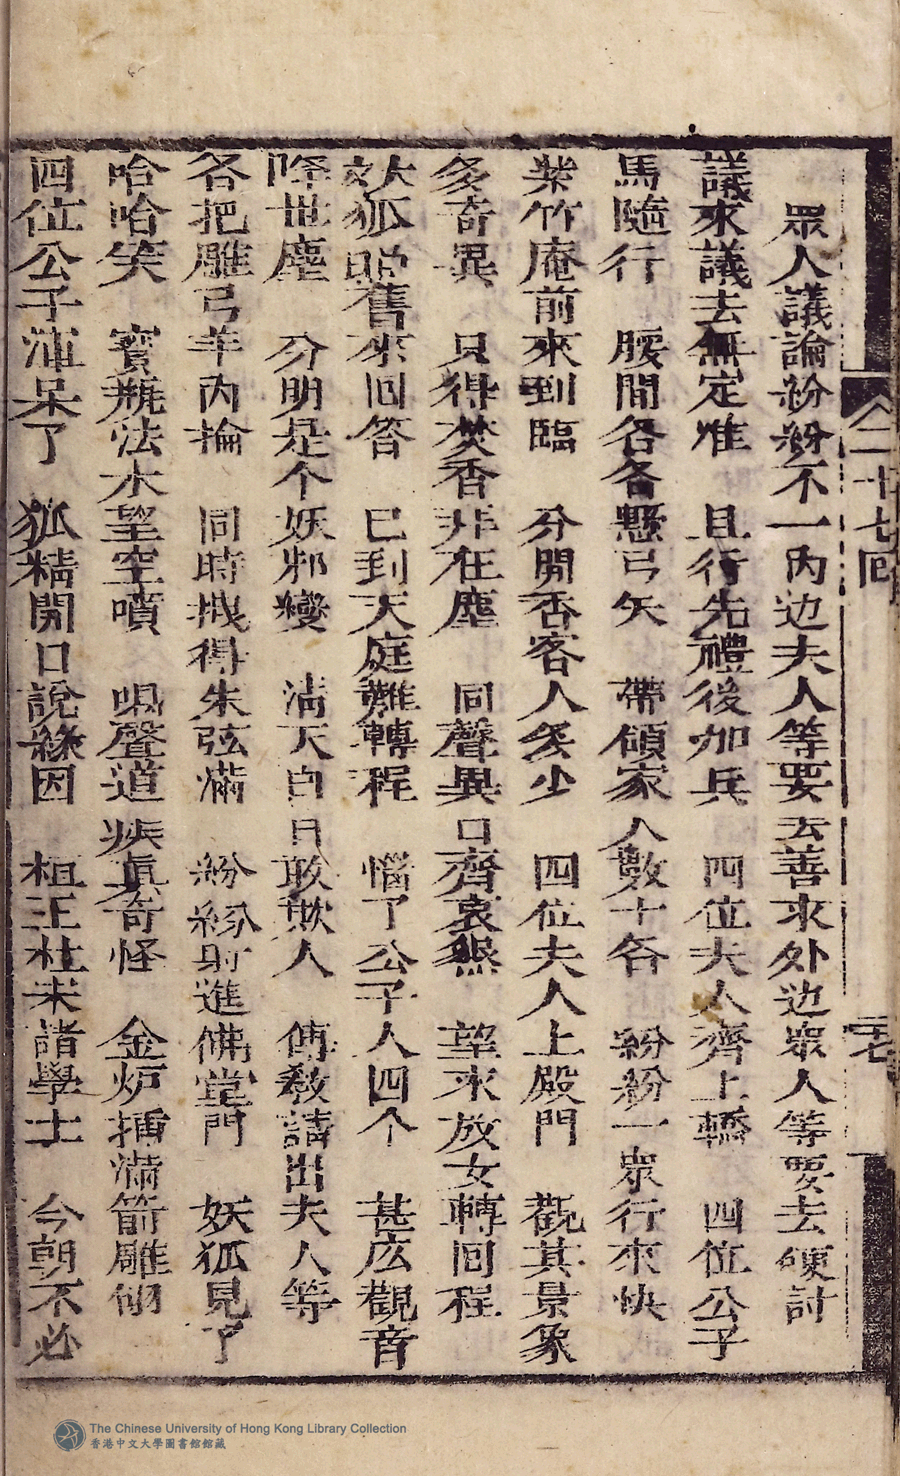 二十七回
二七
眾人議論紛紛不一內边夫人等要去善求外边眾人等要去硬討
議來議去無定准 且行先禮後加兵 四位夫人齊上轎 四位公子
馬隨行 腰間各各懸弓矢 帶領家人數十各 紛紛一眾行來快
紫竹庵前來到臨 分開香客人多少 四位夫人上殿門 觀其景象
多奇異 只得焚香非在塵 同聲異口齊哀懇 望求放女轉回程
妖狐照舊來回答 已到天庭難轉程 惱了公子人四个 甚庅觀音
降世塵 分明是个妖邪變 清天白日敢欺人 傳教請出夫人等
各把雕弓羊內掄 同時扯得朱弦滿 紛紛射進佛堂門 妖狐見了
哈哈笑 寶瓶法水望空噴 喝聲道疾真奇怪 金炉插滿箭雕翎
四位公子渾呆了 狐精開口說緣因 桓王杜宋諸學士 今朝不必
The Chinese University of Hong Kong Library Collection
香港中文大學圖書館館藏